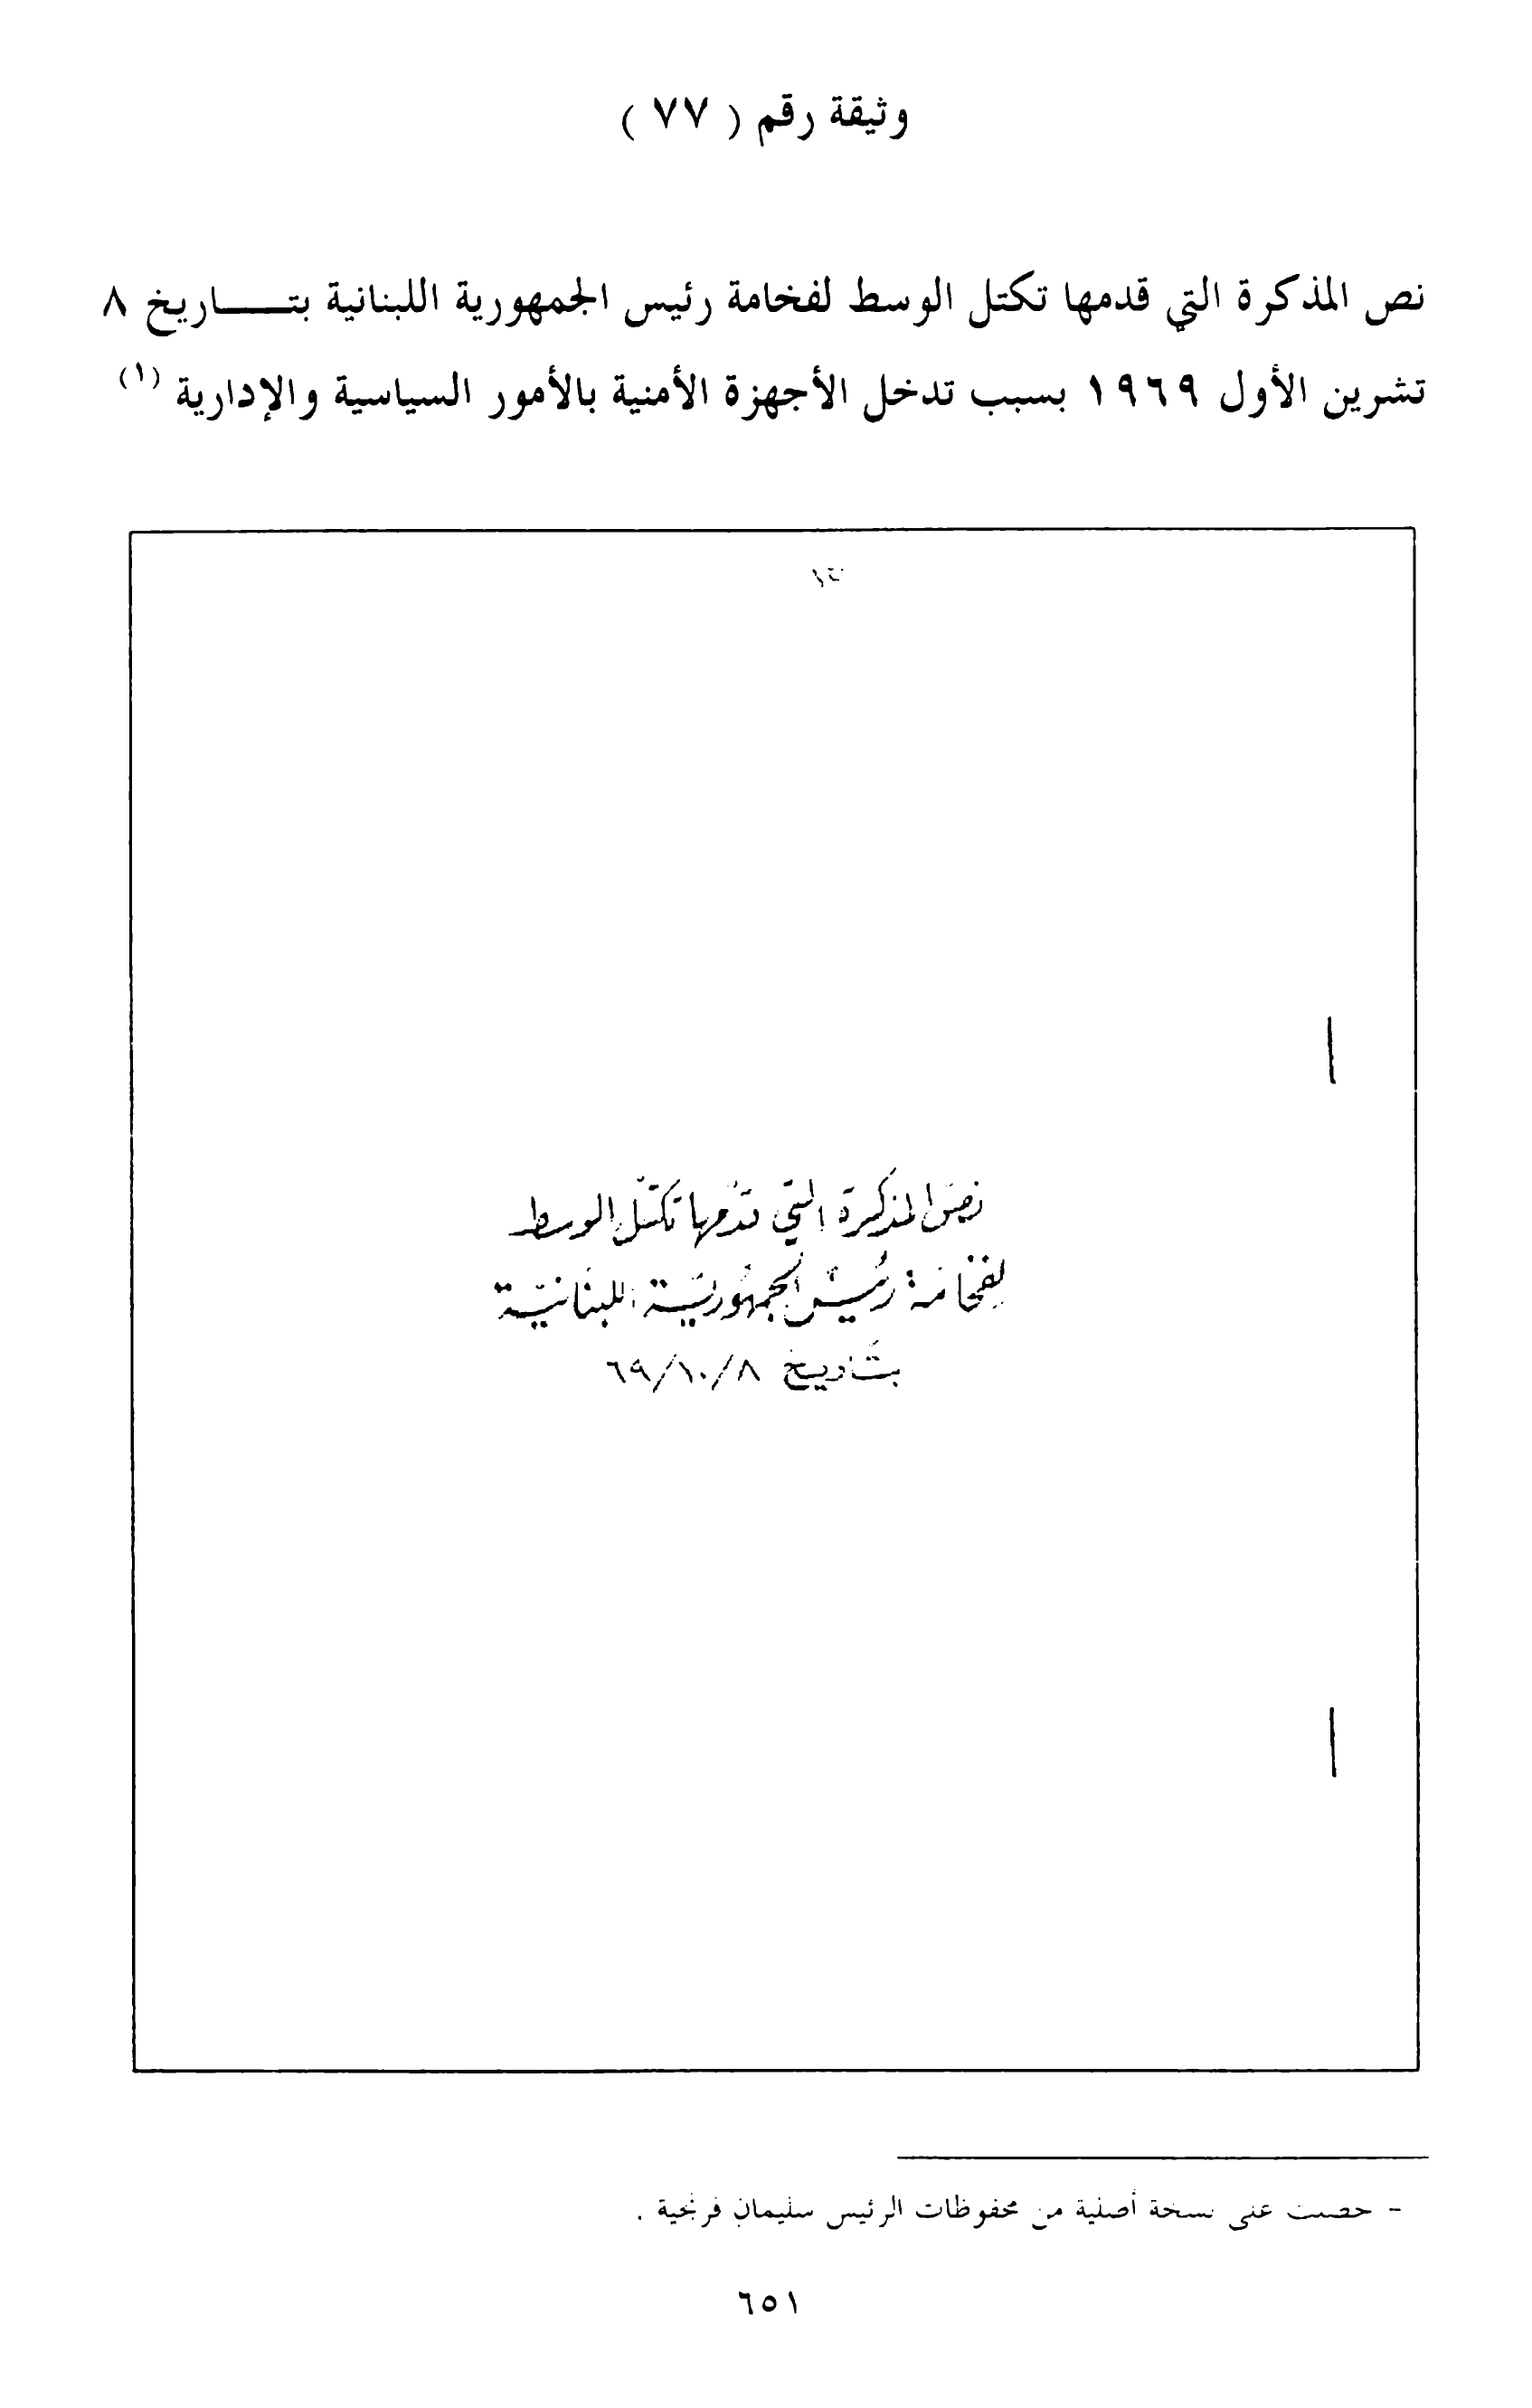 وثيقة رقم ( ٧٧ )
نص المذكرة التي قدمها تكتل الوسط لفخامة رئيس الجمهورية اللبنانية بتـــــاريخ ٨
تشرين الأول ١٩٦٩ بسبب تدخل الأجهزة الأمنية بالأمور السياسية والإدارية (١)
نص المذكرة التي قدّمها تكتّل الوسط
لفخامة رئيس الجمهوريّة اللبنانيّة
بتاريخ ٦٩/١٠/٨
- حصلت على نسخة أصلية من محفوظات الرئيس سليمان فرنجية .
٦٥١